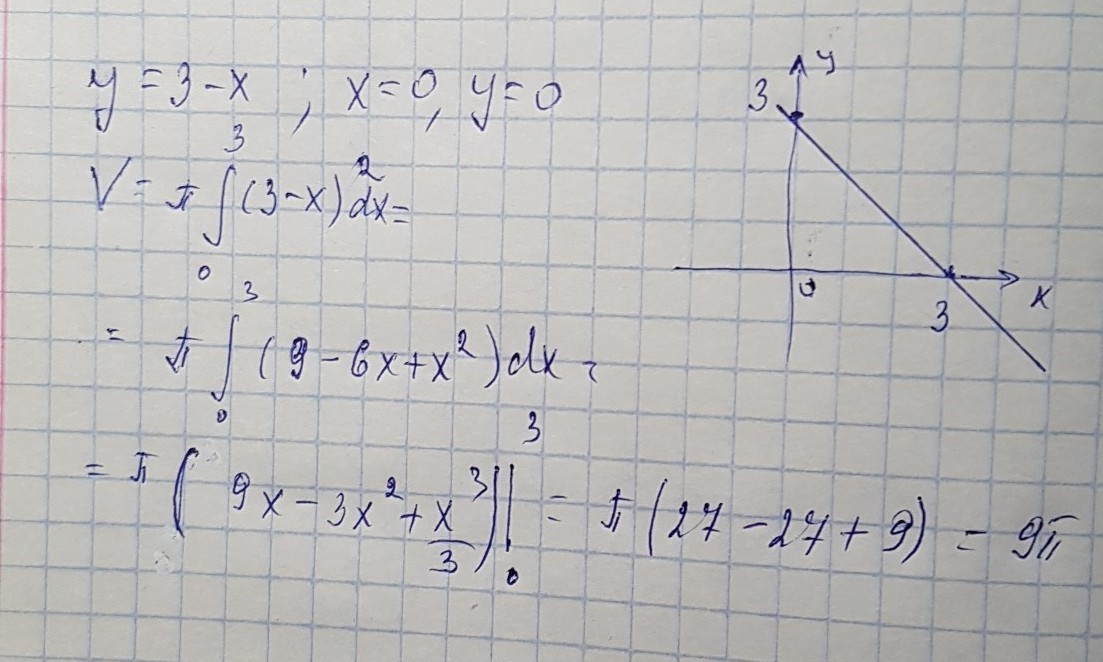 y = 3 - x ; x = 0, y = 0
V = π ∫₀³ (3 - x)² dx =
= π ∫₀³ (9 - 6x + x²) dx =
= π (9x - 3x² + x³/3) |₀³ = π (27 - 27 + 9) = 9π
y
3
0
3
x